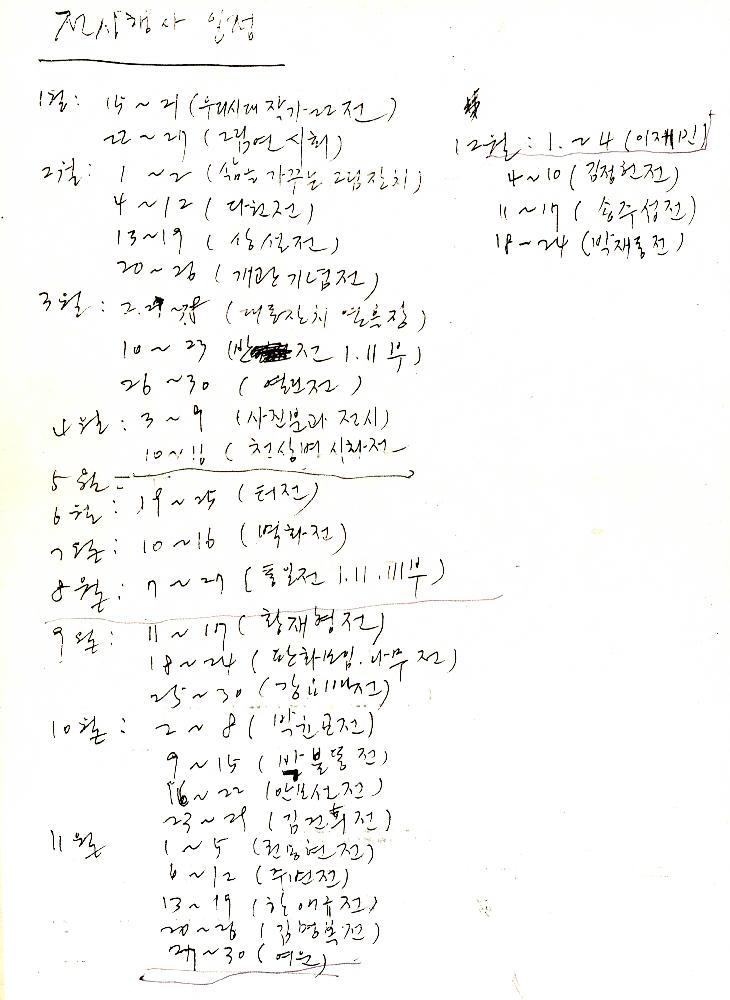 전시행사 일정
1월: 15~21 (우리시대 작가 22전)
22~27 (그림연시회)
2월: 1 ~2 (삶을 가꾸는 그림잔치)
4~12 (다현전)
13~19 ( 상설전)
20~26 (개관기념전)
3월: (대동잔치 열흠장)
10~23 전 1.11부)
26~30 ( 여건전 )
4월: 3~9 (사진분과 전시)
(천상병 시화전
5월
6월: 19~25 (터전)
7월: 10~16 (벽화전)
8월: 7~27 (통일전 1.11.111부)
9월: 11~17 (황재형전)
18~24 (판화모임.나무전)
25~30 (강요배전)
10월: 2~8 (박윤모전)
9~15 (박불똥전)
16~22 (안보선전)
23~29 (김건희전)
11월 1~5 (전동현전)
6~12 (주변전)
13~19 (한애규전)
20~26 (김명복전)
27~30 (여운)
12월: 1.~24 (이재민)
4~10 (김정헌전)
11~17 ( 송주섭전)
18~24 (박재동전)